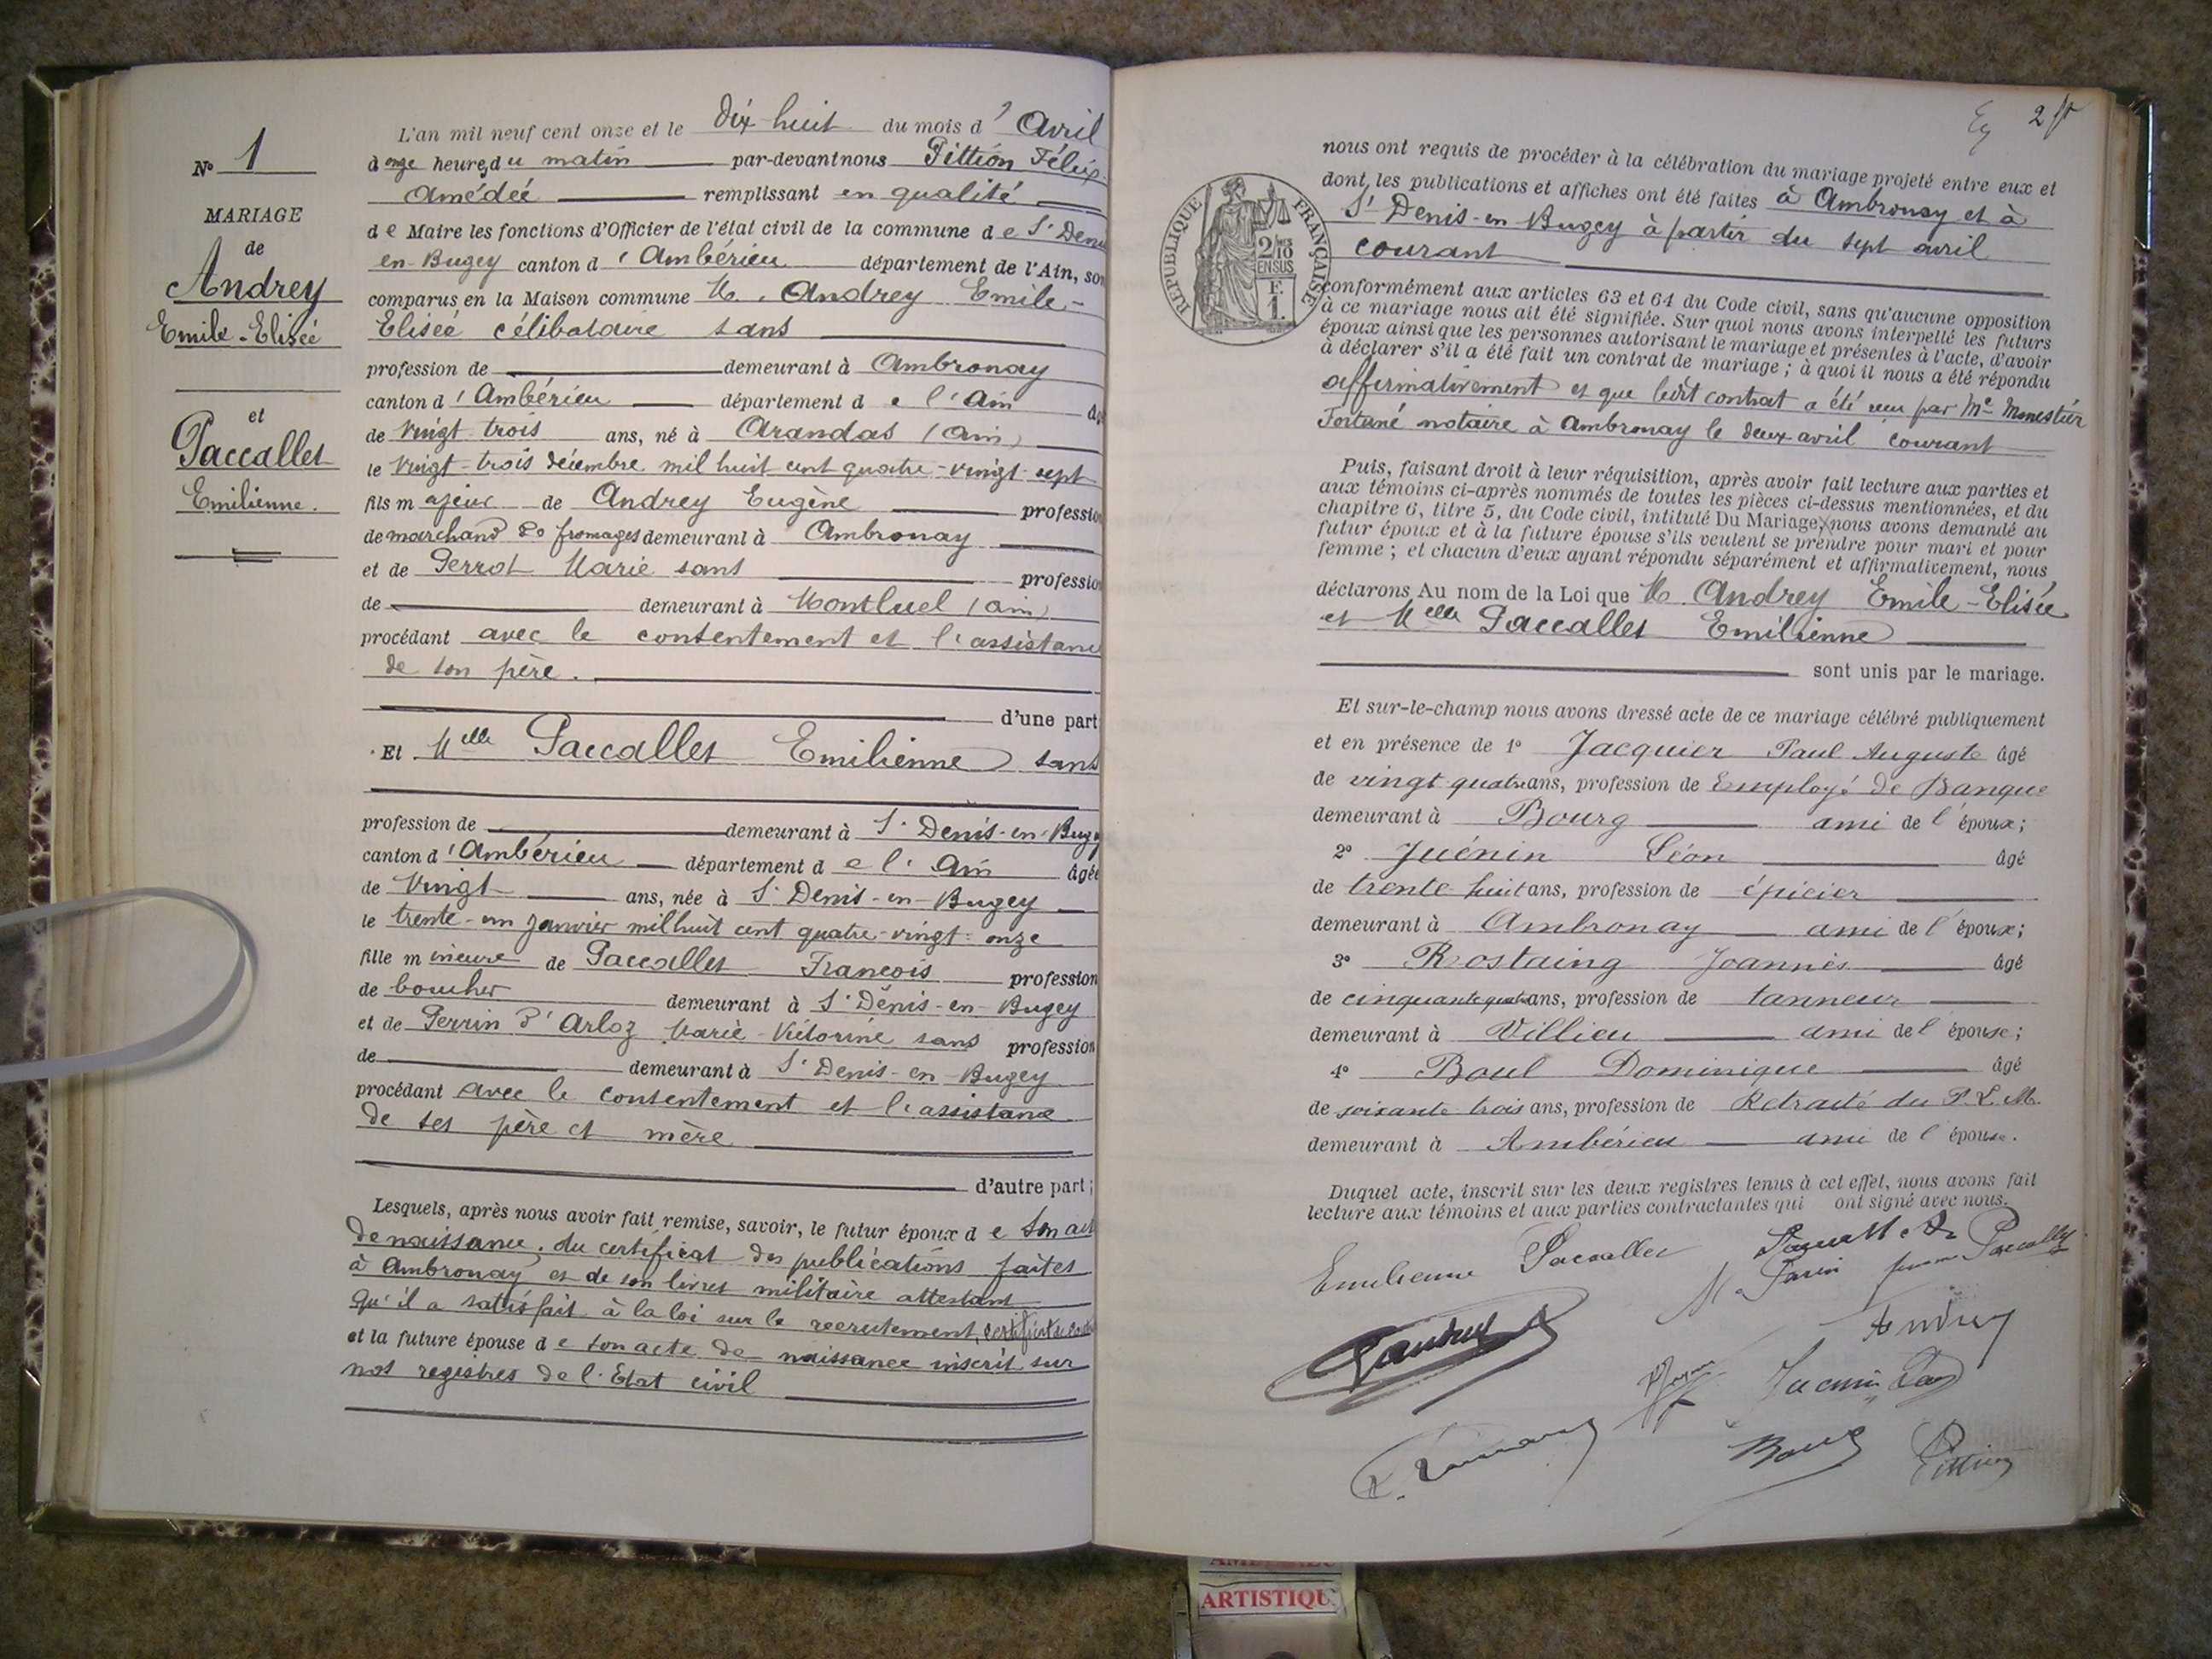 N° 1
MARIAGE
de
Andrey
Emile-Elisée
et
Paccallet
Emilienne.
L'an mil neuf cent onze et le dix huit du mois d' Avril
à onze heures du matin par-devant nous Pittion Félix
Amédée remplissant en qualité
de Maire les fonctions d'Officier de l'état civil de la commune de St Denis
en-Bugey canton d'Ambérieu département de l'Ain, son
comparus en la Maison commune M. Andrey Emile-
Elisée célibataire sans
profession de demeurant à Ambronay
canton d'Ambérieu département de l'Ain âgé
de vingt trois ans, né à Arandas (Ain)
le vingt-trois décembre mil huit cent quatre-vingt-sept
fils majeur de Andrey Eugène profession
de marchand de fromages demeurant à Ambronay
et de Perrot Marie sans profession
de demeurant à Montluel (Ain)
procédant avec le consentement et l'assistance
de son père.
d'une part
Et Melle Paccallet Emilienne sans
profession de demeurant à St Denis-en-Bugey
canton d'Ambérieu département de l'Ain âgée
de vingt ans, née à St Denis-en-Bugey
le trente-un janvier mil huit cent quatre-vingt-onze
fille mineure de Paccallet François profession
de boucher demeurant à St Denis-en-Bugey
et de Perrin d'Arloz Marie-Victorine sans profession
de demeurant à St Denis-en-Bugey
procédant avec le consentement et l'assistance
de ses père et mère
d'autre part;
Lesquels, après nous avoir fait remise, savoir, le futur époux de son acte
de naissance, du certificat des publications faites
à Ambronay et de son livret militaire attestant
qu'il a satisfait à la loi sur le recrutement, certificat de
et la future épouse de son acte de naissance inscrit sur
nos registres de l'Etat civil
2
nous ont requis de procéder à la célébration du mariage projeté entre eux et
dont les publications et affiches ont été faites à Ambronay et à
St Denis-en-Bugey à partir du sept avril
courant
RÉPUBLIQUE FRANÇAISE
2/10 EN SUS
1 F.
conformément aux articles 63 et 64 du Code civil, sans qu'aucune opposition
à ce mariage nous ait été signifiée. Sur quoi nous avons interpellé les futurs
époux ainsi que les personnes autorisant le mariage et présentes à l'acte, d'avoir
à déclarer s'il a été fait un contrat de mariage; à quoi il nous a été répondu
affirmativement et que ledit contrat a été reçu par Me Monestier
Fortuné notaire à Ambronay le deux avril courant
Puis, faisant droit à leur réquisition, après avoir fait lecture aux parties et
aux témoins ci-après nommés de toutes les pièces ci-dessus mentionnées, et du
chapitre 6, titre 5, du Code civil, intitulé Du Mariage, nous avons demandé au
futur époux et à la future épouse s'ils veulent se prendre pour mari et pour
femme; et chacun d'eux ayant répondu séparément et affirmativement, nous
déclarons Au nom de la Loi que M. Andrey Emile-Elisée
et Melle Paccallet Emilienne
sont unis par le mariage.
Et sur-le-champ nous avons dressé acte de ce mariage célébré publiquement
et en présence de 1° Jacquier Paul Auguste âgé
de vingt quatre ans, profession de Employé de Banque
demeurant à Bourg ami de l'époux;
2° Juénin Léon âgé
de trente huit ans, profession de épicier
demeurant à Ambronay ami de l'époux;
3° Rostaing Joannès âgé
de cinquante quatre ans, profession de tanneur
demeurant à Villieu ami de l'épouse;
4° Boul Dominique âgé
de soixante trois ans, profession de Retraité du P.L.M.
demeurant à Ambérieu ami de l'épouse.
Duquel acte, inscrit sur les deux registres tenus à cet effet, nous avons fait
lecture aux témoins et aux parties contractantes qui ont signé avec nous.
Emilienne Paccallet
M Perrin femme Paccallet
Andrey
Juénin
Pittion
ARTISTIQU